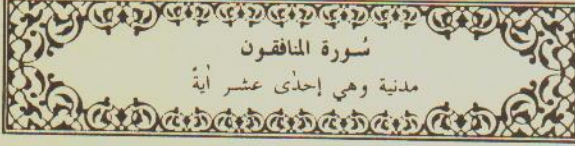 سُورة المنافقون
مدنية وهي إحدٰى عشر اٰيةً